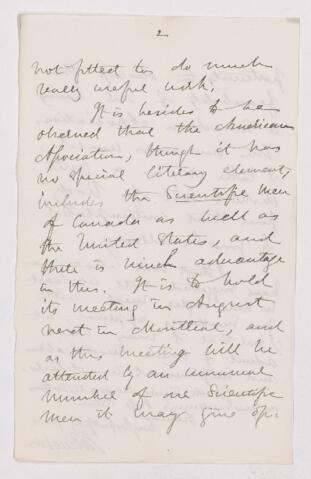 2
not fitted to do much
really useful work.
It is besides to be
observed that the American
Association, though it has
no special literary element,
includes the Scientific men
of Canada as well as
the United States, and
there is much advantage
in this. It is to hold
its meeting in August
next in Montreal, and
as this meeting will be
attended by an unusual
number of our Scientific
men it may give op-